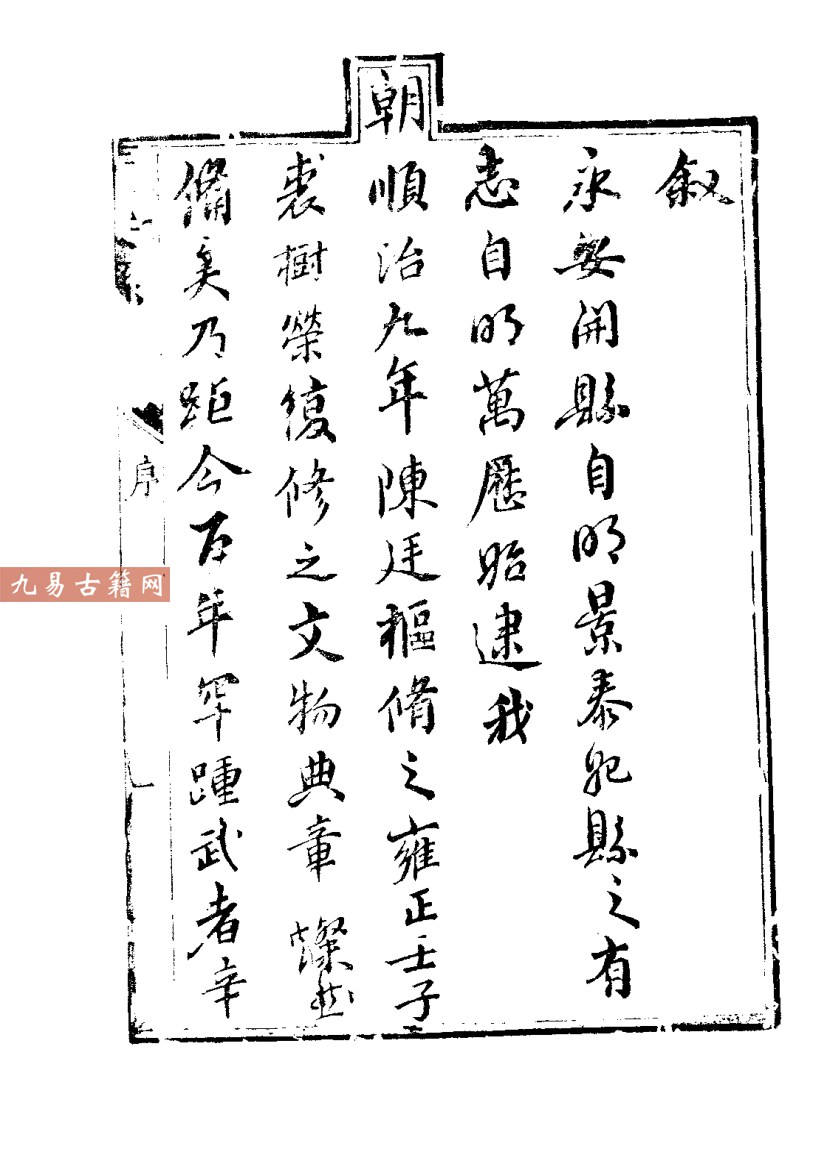 叙
永安開縣自明景泰始縣之有
志自明萬歷昭逮我
朝順治九年陳廷樞脩之雍正壬子
裘樹榮復修之文物典章燦然
備矣乃距今百年罕踵武者辛
序
一
九易古籍网